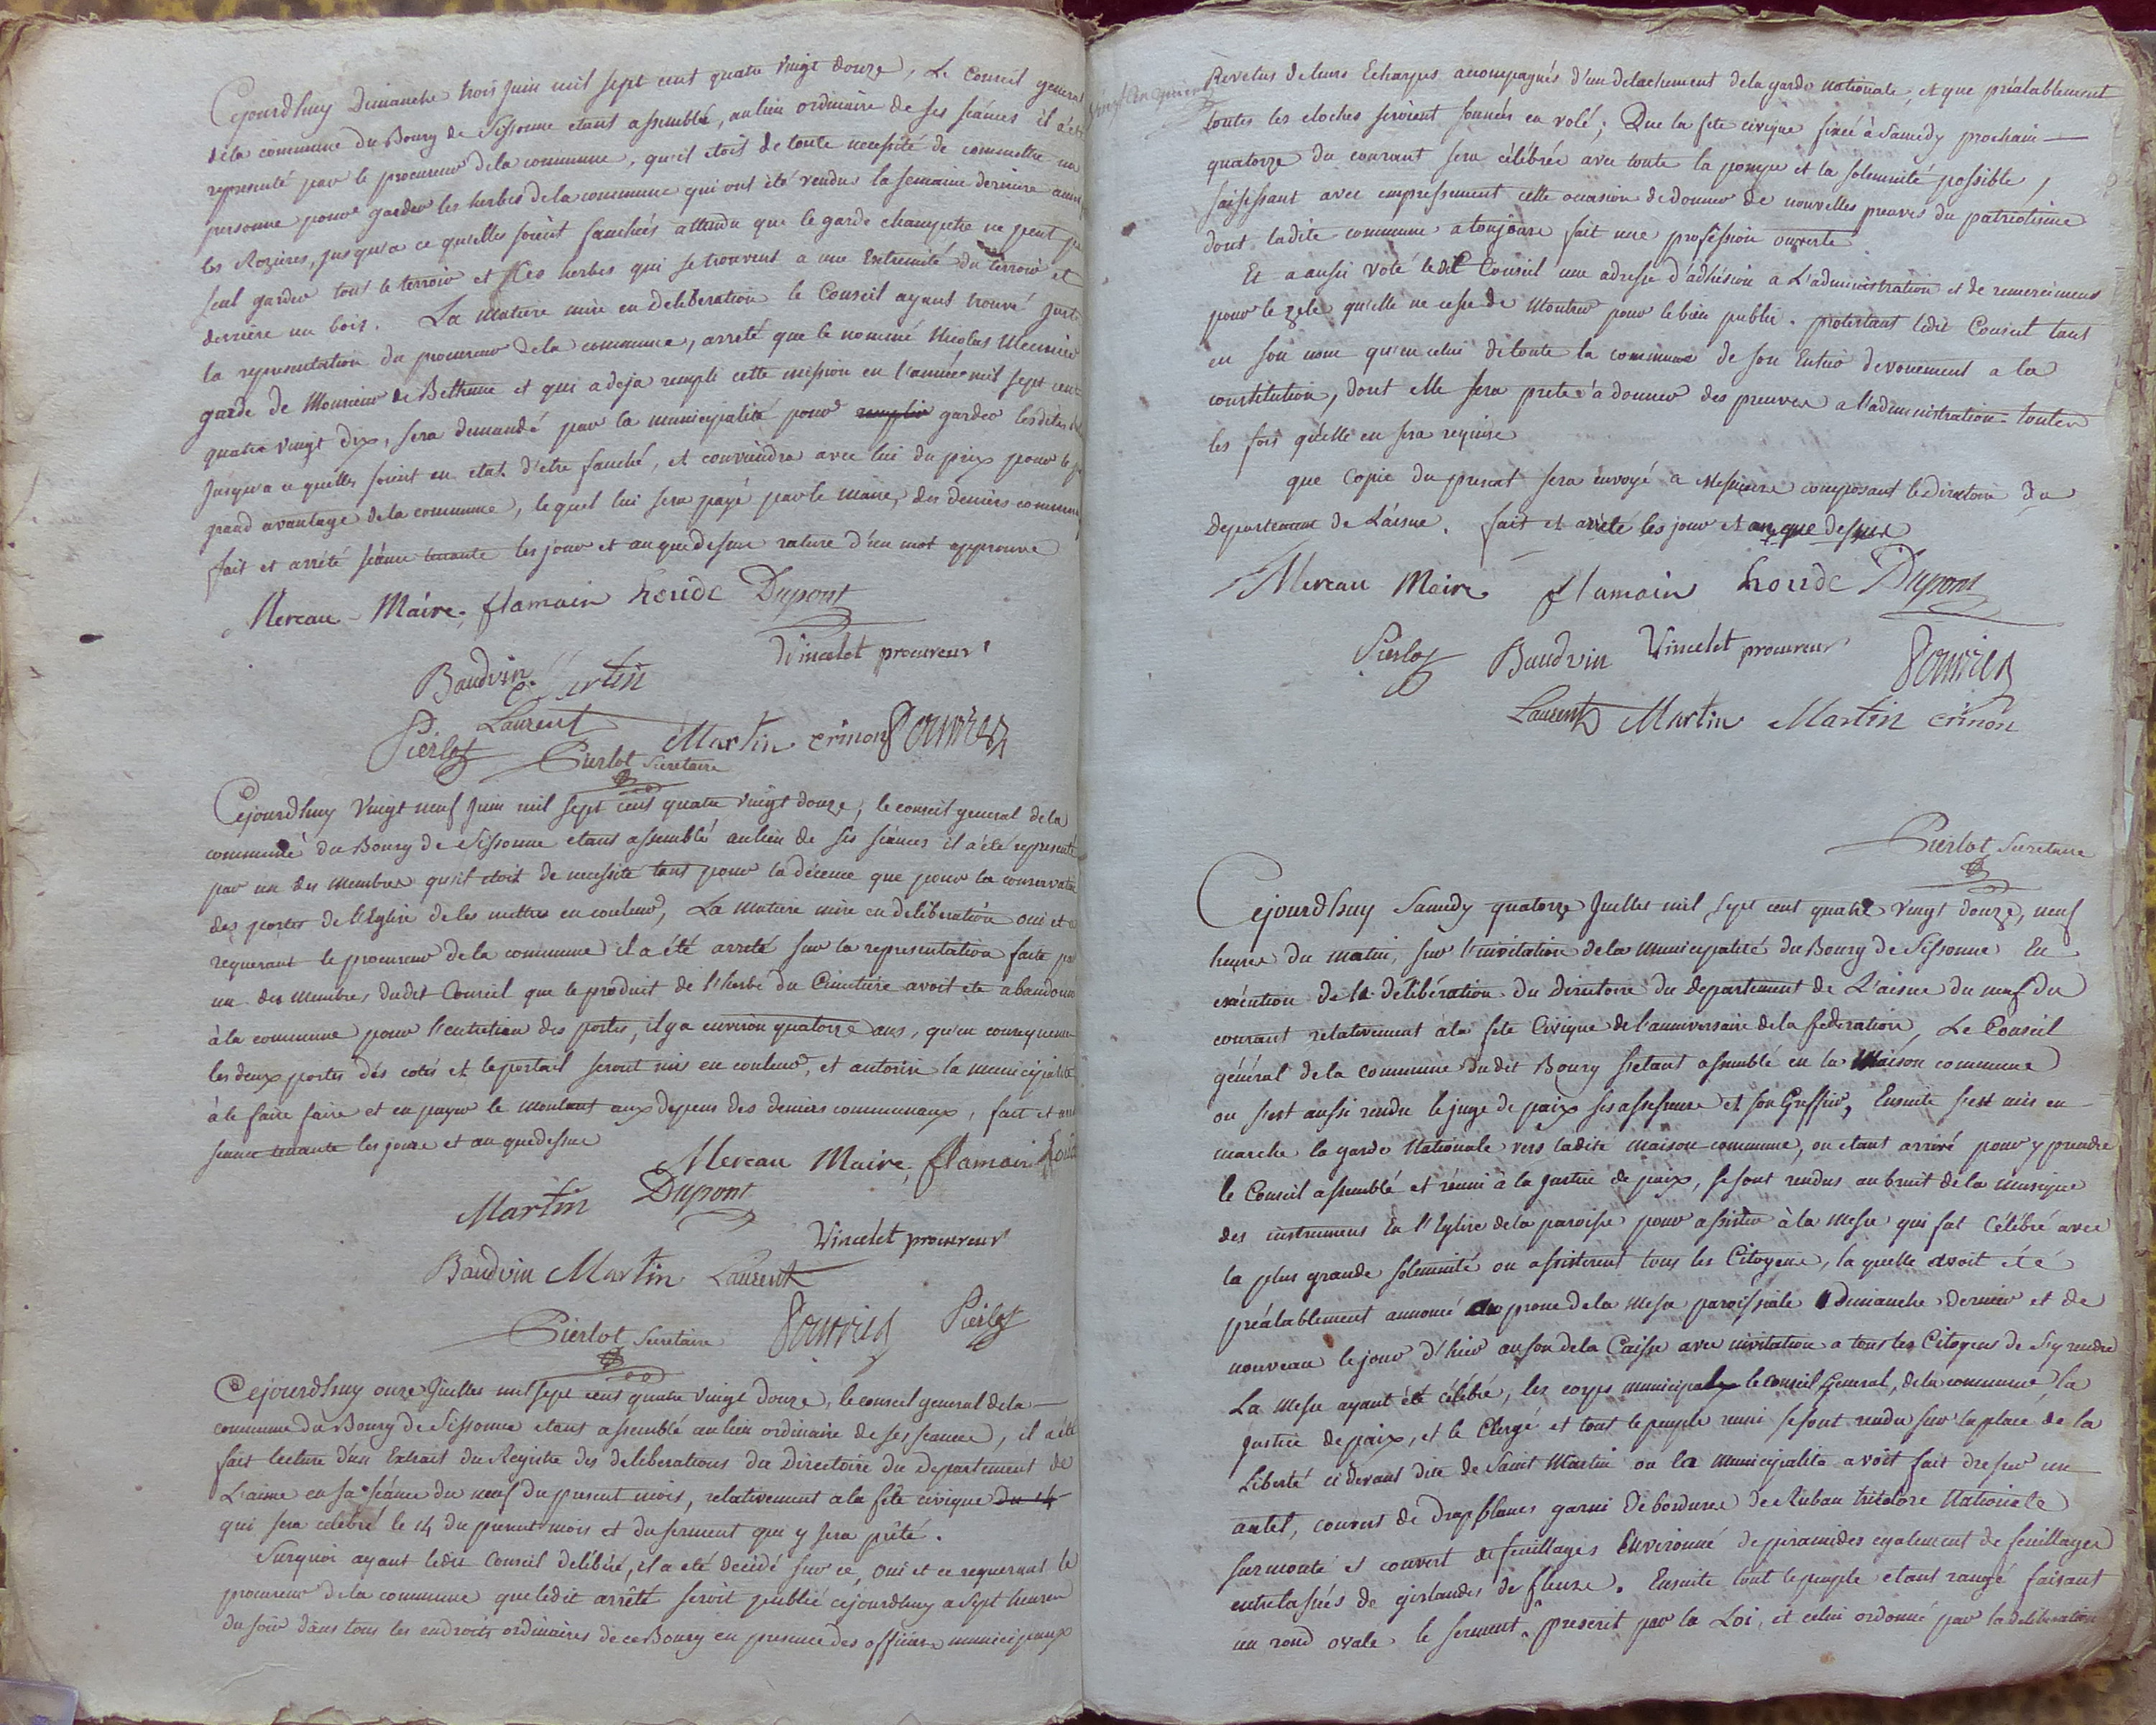 Cejourdhuy Dimanche trois Juin mil sept cent quatre vingt douze, Le Conseil general
dela commune du Bourg de Sissonne etant assemblé, au lieu ordinaire de ses séances il a été
representé par le procureur dela commune, qu'il etoit de toute necessité de commettre une
personne pour garder les herbes dela commune qui ont été vendus la semaine derniere
les Rozieres, jusqu'a ce qu'elles soient fauchées attendu que le garde champetre ne peut pas
seul garder tout le terroir et les herbes qui se trouvent a une Extremité du terroir et
derriere un bois. La matiere mise en deliberation le Conseil ayant trouvé juste
la representation du procureur dela commune, arreté que le nommé Nicolas Meunier
garde de Monsieur de Bethune et qui a deja rempli cette mission en l'année mil sept cent
quatre vingt dix, sera demandé par la municipalité pour remplir garder lesdites
Jusqu'a ce qu'elles soient en etat d'etre fauché, et conviendra avec lui du prix pour le
grand avantage dela commune, lequel lui sera payé par le maire, des deniers communs
fait et arrété séance tenante les jour et an que dessus rature d'un mot approuvé
Mereau Maire. flamain houde Dupont
Vincelet procureur
Baudvin Martin
Laurent
Pierlot Martin crinon Pourrier
Pierlot Secretaire
Cejourdhuy Vingt neuf Juin mil sept cent quatre vingt douze, le conseil general dela
commune du Bourg de Sissonne etant assemblé au lieu de ses séances il a été representé
par un des membres qu'il etoit de necessité tant pour la décence que pour la conservation
des portes de l'Eglise de les mettre en couleur, La matiere mise en deliberation oui et ce
requerant le procureur de la commune il a été arreté sur la representation faite par
un des membres dudit Conseil que le produit de l'herbe du Cimetiere avoit ete abandonné
à la commune pour l'entretien des portes, il y a environ quatorze ans, qu'en consequence
les deux portes des cotés et le portail seront mis en couleur, et autorise la municipalité
à le faire faire et en payer le montant aux depens des deniers communaux, fait et arreté
séance tenante les jours et an que dessus
Mereau Maire, flamain houde
Martin Dupont
Vincelet procureur
Baudvin Martin Laurent
Pierlot Secretaire Pourrier Pierlot
Cejourdhuy onze Juillet mil sept cent quatre vingt douze, le conseil general dela
commune du Bourg de Sissonne etant assemblé au lieu ordinaire de ses séances, il a été
fait lecture d'un Extrait du Registre des deliberations du Directoire du departement de
L'aisne en sa séance du neuf du present mois, relativement a la fête civique du 14
qui sera celebré le 14 du present mois et du serment qui y sera prêté.
Surquoi ayant ledit Conseil délibéré, il a eté decidé sur ce, oui et ce requerant le
procureur de la commune que ledit arrêté seroit publié cejourdhuy a sept heures
du soir dans tous les endroits ordinaires de ce Bourg en presence des officiers municipaux
Revetus de leurs Echarpes acompagnés d'un detachement dela garde nationale, et que préalablement
toutes les cloches seroient sonnées en volé; Que la fete civique fixée à Samedy prochain
quatorze du courant sera célébrée avec toute la pompe et la solemnité possible,
saisissant avec empressement cette occasion de donner de nouvelles preuves du patriotisme
dont ladite commune a toujours fait une profession ouverte
Et a aussi voté ledit Conseil une adresse d'adhésion a L'administration et de remerciment
pour le zele qu'elle ne cesse de montrer pour le bien public. protestant ledit Conseil tant
en son nom qu'en celui de toute la commune de son Entier devouement a la
constitution, dont elle sera prete à donner des preuves a l'administration toutes
les fois qu'elle en sera requise
que Copie du present sera envoyé a Messieurs composant le Directoire du
Departement de L'aisne. fait et arrêté les jour et an que dessus
Mereau Maire flamain houde Dupont
Pierlot Baudvin Vincelet procureur Pourrier
Laurent Martin Martin crinon
Pierlot Secretaire
Cejourdhuy Samedy quatorze Juillet mil sept cent quatre vingt douze, neuf
heures du matin, sur l'invitation dela municipalité du Bourg de Sissonne En
exécution de la délibération du Directoire du departement de L'aisne du neuf du
courant relativement à la fete Civique de l'anniversaire dela federation, Le Conseil
général de la commune dudit Bourg s'etant assemblé en la Maison commune
ou s'est aussi rendu le juge de paix ses assesseurs et son Greffier, Ensuite s'est mis en
marche la garde Nationale vers ladite maison commune, ou etant arrivé pour y prendre
le Conseil assemblé et réuni à la justice de paix, se sont rendus au bruit dela musique
des instrumens En l'Eglise dela paroisse pour assister à la Messe qui fut Célébré avec
la plus grande solemnité ou assisterent tous les Citoyens, laquelle avoit été
préalablement annoncé au prone dela Messe paroissiale Dimanche dernier et de
nouveau le jour d'hier au son dela Caisse avec invitation a tous les Citoyens de s'y rendre
La Messe ayant été célébré, les corps municipaux le conseil general, dela commune, la
Justice de paix, et le Clergé et tout le peuple reuni se sont rendu sur la place de la
Liberté ci devant dite de Saint Martin ou la municipalité avoit fait dresser un
autel, couvert de drap blanc garni de bordures de Ruban tricolore Nationale
surmonté et couvert de feuillages Environné de piramides egalement de feuillages
entrelassées de girlandes de fleurs. Ensuite tout le peuple etant rangé faisant
un rond ovale le serment prescrit par la Loi, et celui ordonné par la deliberation